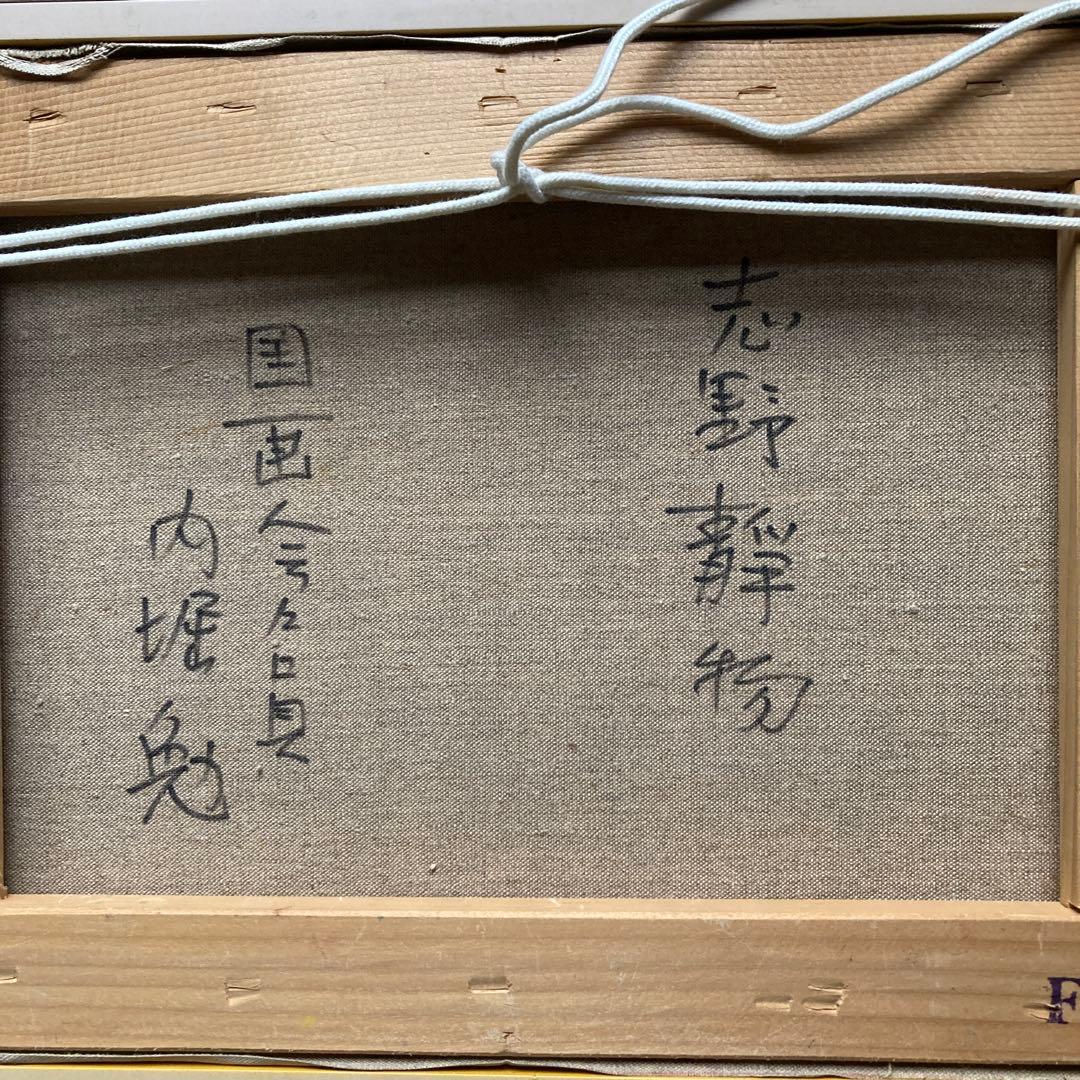 志野靜物
国画会々員
内堀勉
F